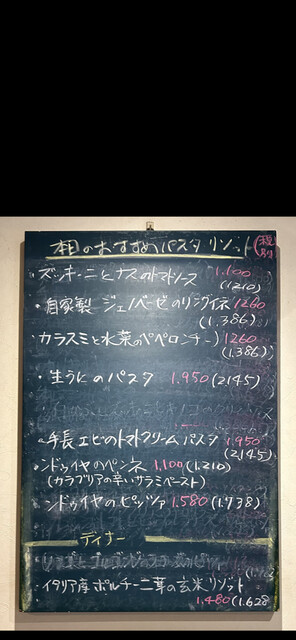 本日のおすすめパスタ リゾット(税別)
・ズッキーニとナスのトマトソース 1.100
(1210)
・自家製 ジェノベーゼのリングイネ 1260
(1.386)
・カラスミと水菜のペペロンチーノ 1260
(1.386)
・生うにのパスタ 1.950(2145)
・手長エビのトマトクリームパスタ 1.950
(2145)
・ンドゥイヤのペンネ 1.100(1.210)
(カラブリアの辛いサラミペースト)
・ンドゥイヤのピッツァ 1.580(1.738)
ディナー
・イタリア産ポルチーニ茸の玄米リゾット
1.480(1.628